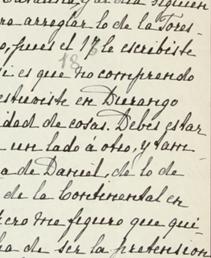 ra arreglar lo de la Tores-
o, pues el 17 le escribiste
18
si es que no comprendo
estuviste en Durango
idad de cosas. Debes estar
un lado á otro, y tam-
a de Daniel, de lo de
de la Continental en
ero me figuro que qui-
ha de ser la pretension